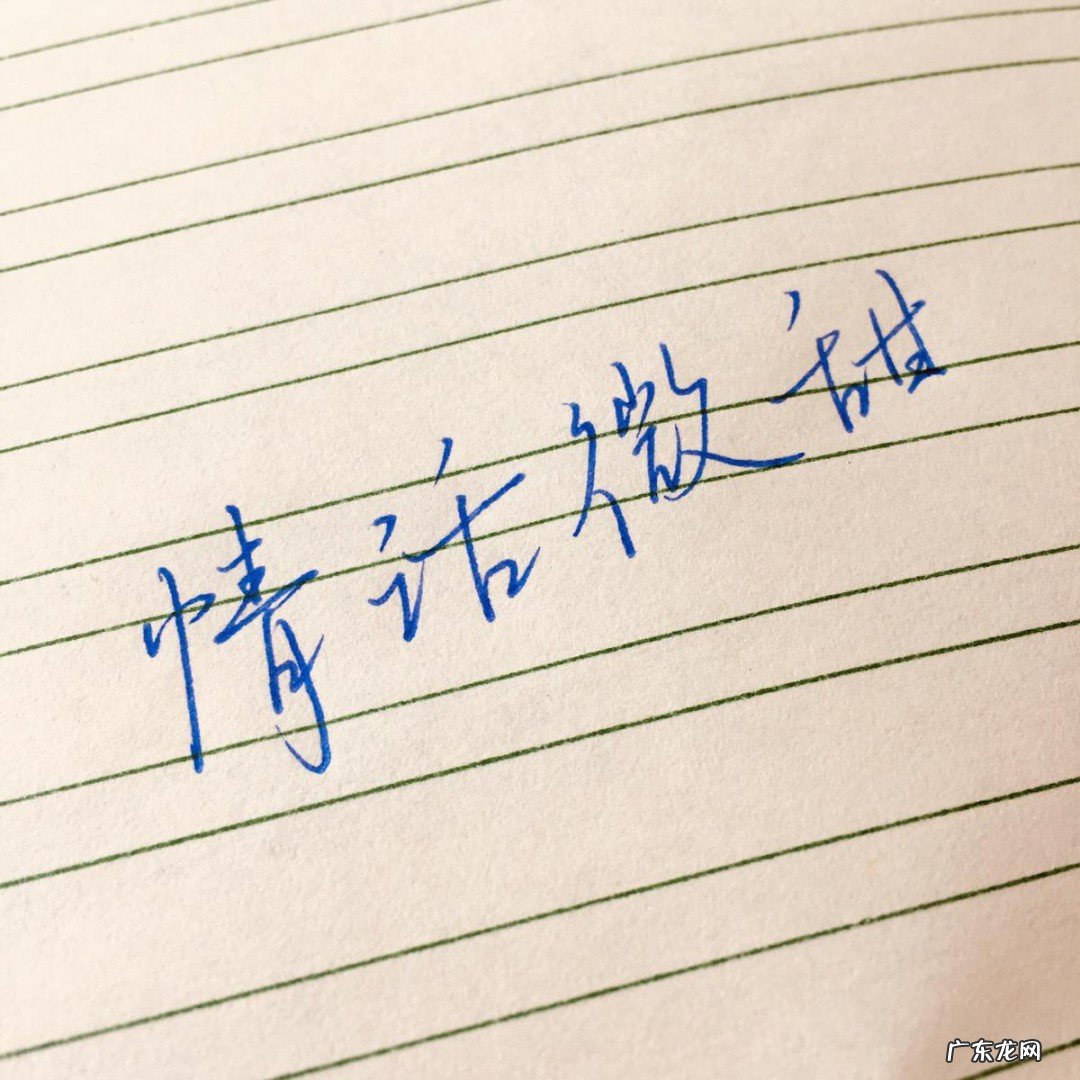 情话微甜
广东龙网